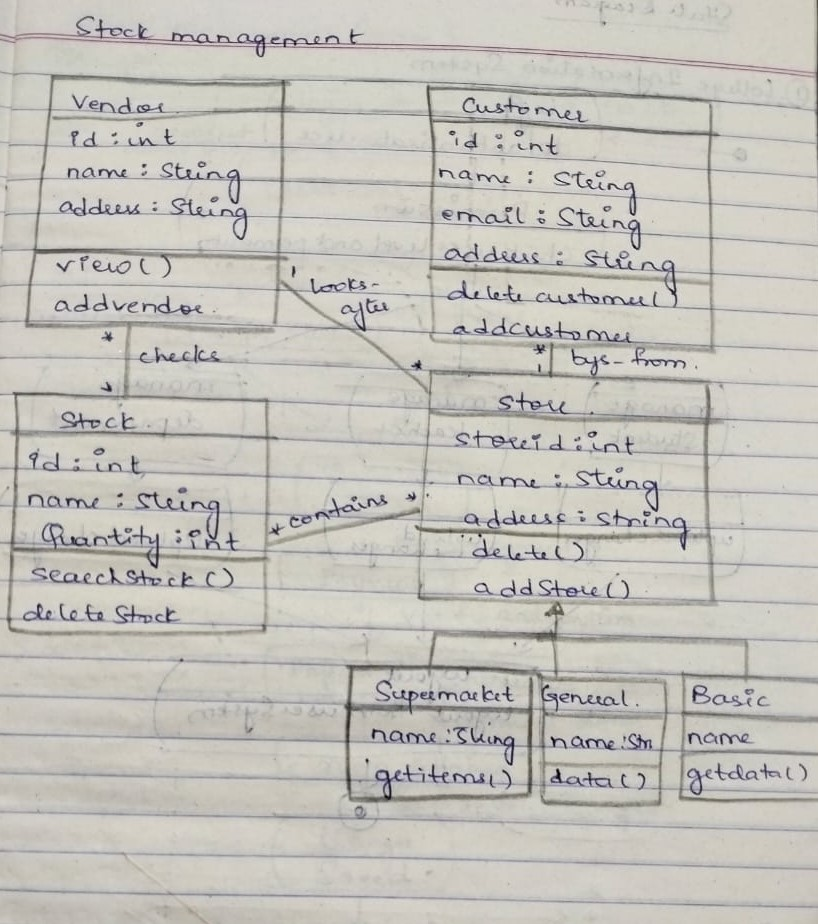 Stock management
Vendor
id : int
name : String
address : String
view()
addvendor
Customer
id : int
name : String
email : String
address : String
delete customer()
addcustomer
1 looks-
after
*
*
checks
*
*
1
bys-from.
Stock
id : int
name : String
Quantity : int
searchStock()
delete Stock
* contains *
Store
storeid : int
name : String
address : String
delete()
addStore()
Supermarket
name : String
getitems()
General.
name : Str
data()
Basic
name
getdata()